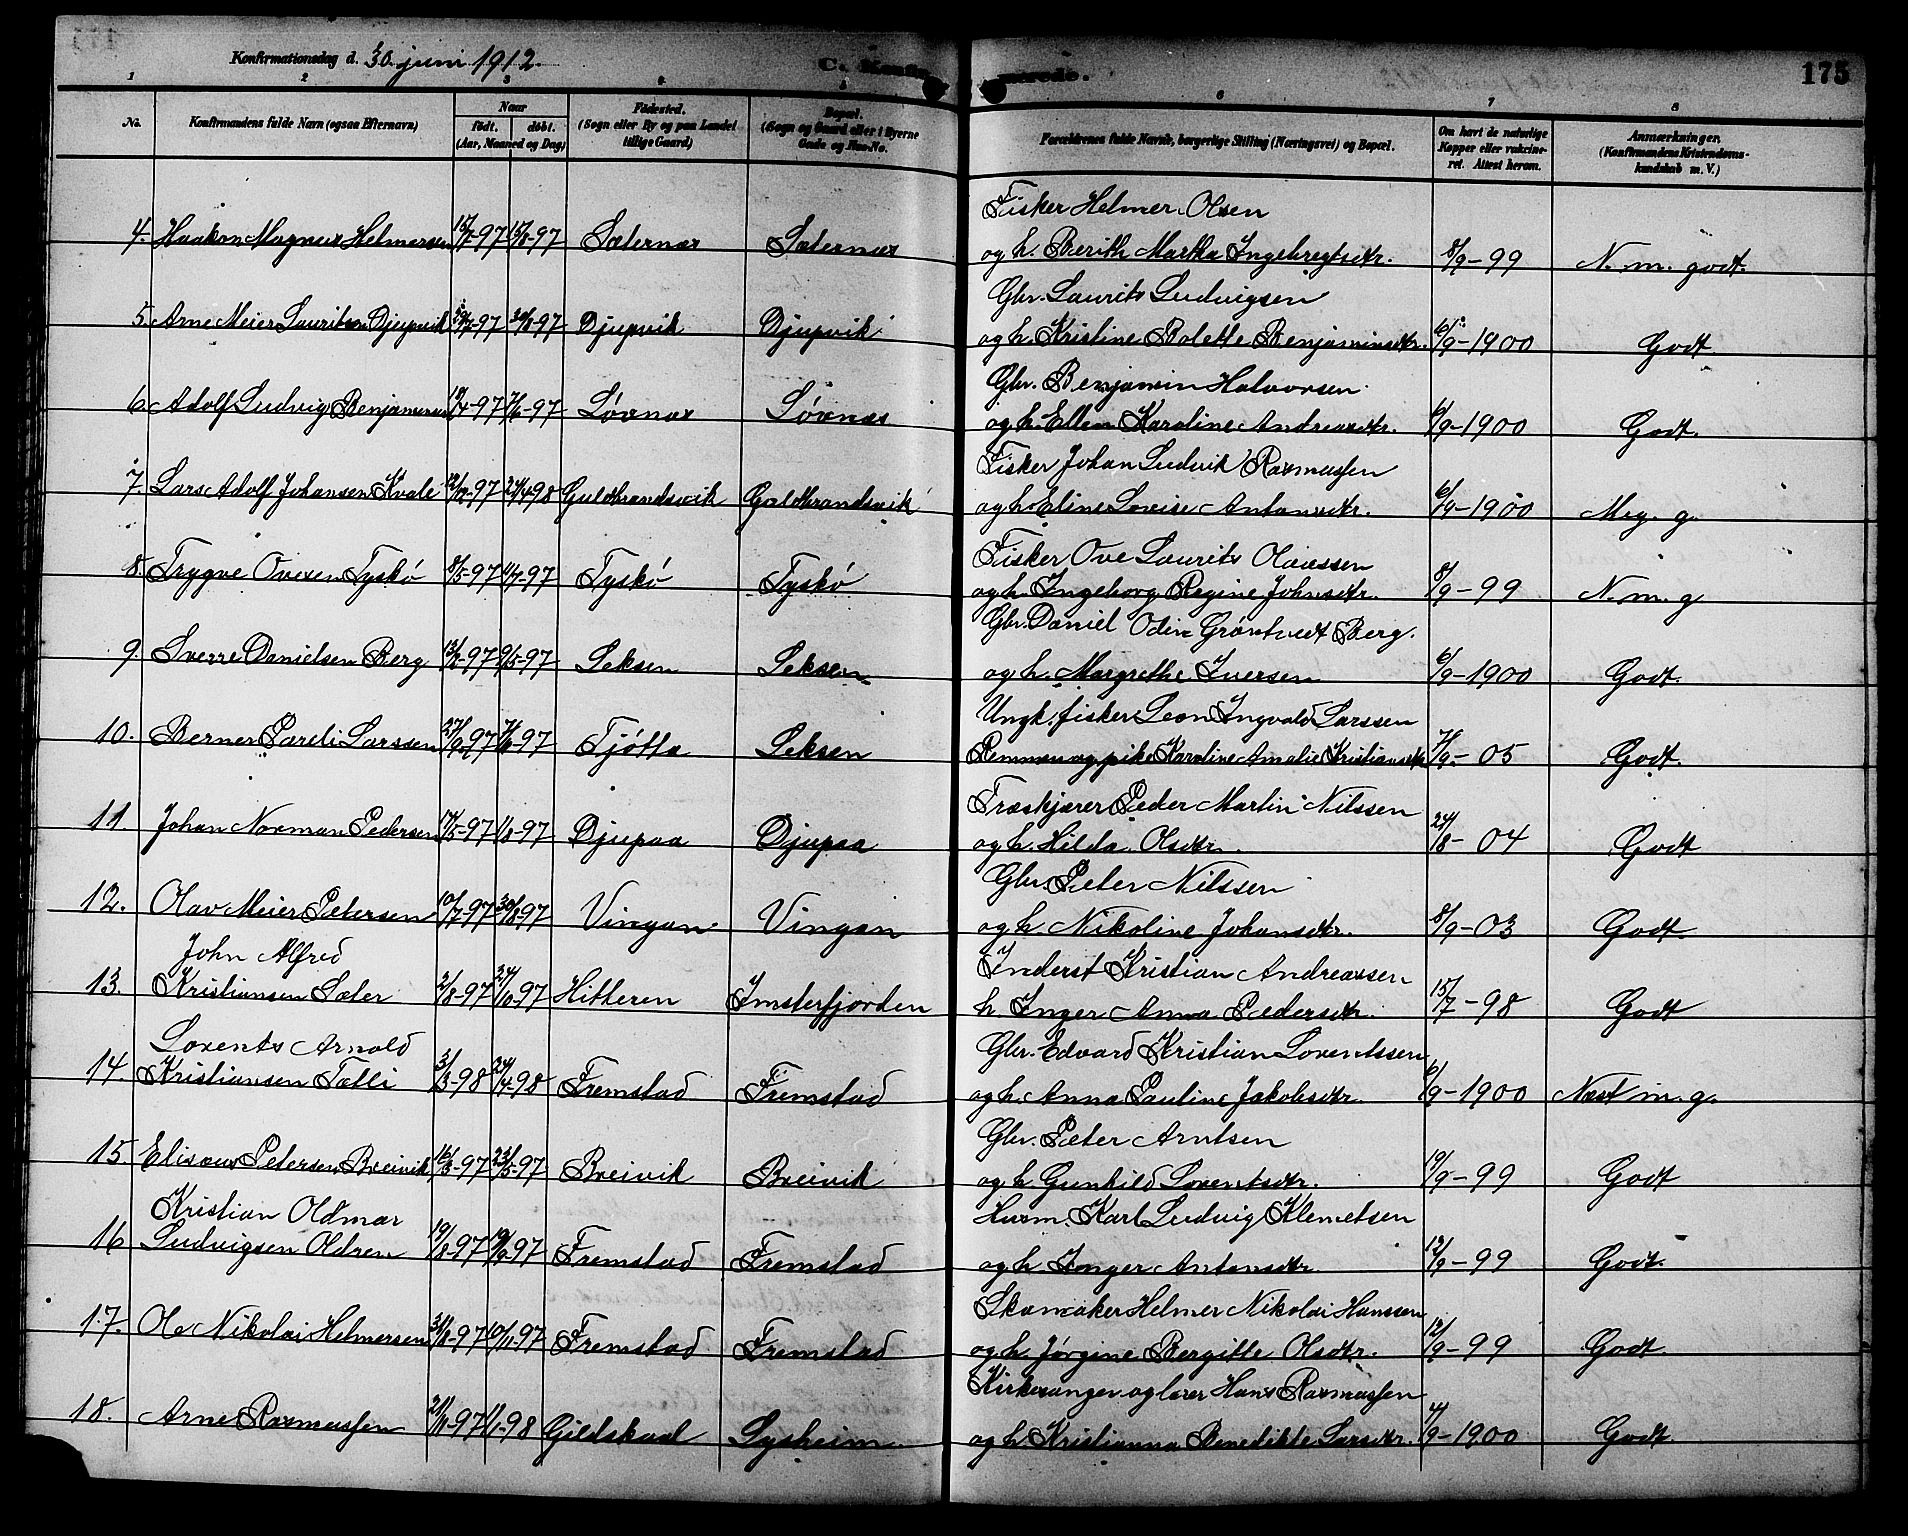 Konfirmationsdag d. 30. juni 1912.
C. Konfir merede. 175
1 2 3 4 5 6 7 8
No. Konfirmandens fulde Navn (ogsaa Efternavn) Naar født. døbt. (Aar, Maaned og Dag) Fødested. (Sogn eller By og paa Landet tillige Gaard) Bopæl. (Sogn og Gaard eller i Byerne Gade og Hus-No. Forældrenes fulde Navne, borgerlige Stilling (Næringsvei) og Bopæl. Om havt de naturlige Kopper eller vakcineret. Attest herom. Anmærkninger. (Konfirmandens Kristendomskundskab m. V.)
Fisker Helmer Olsen
4. Haakon Magnus Helmersen 15/7-97 15/8-97 Sæternes Sæternes og h. Berith Martha Ingebregtsdtr. 8/9-99 N. m. godt.
Gbr. Laurits Ludvigsen
5. Arne Meier Lauritsen Djupvik 97 97 Djupvik Djupvik og h. Kristine Bolette Benjaminsdtr. 6/9-1900 Godt
Gbr. Benjamin Halvorsen
6. Adolf Ludvig Benjaminsen 97 7/6-97 Løvnes Løvnes og h. Ellen Karoline Andreasdtr. 6/9-1900 Godt.
Fisker Johan Ludvik Rasmussen
7. Lars Adolf Johansen Kvale 12/12-97 24/4-98 Guldbrandsvik Guldbrandsvik og h. Eline Lovise Antonsdtr. 6/9-1900 Meg. g.
Fisker Ove Laurits Olaussen
8. Trygve Ovesen Tyskø 8/5-97 97 Tyskø Tyskø og h. Ingeborg Regine Johnsdtr. 8/9-99 N. m. g
Gbr. Daniel Odin Grøntvedt Berg.
9. Sverre Danielsen Berg 13/2-97 9/5-97 Seksen Seksen og h. Margrethe Iversen 6/9-1900 Godt.
Ungk. fisker Leon Ingvald Larssen
10. Berner Pareli Larssen 97 7/6-97 Tjøtta Seksen Remmen og pike Karoline Amalie Kristiansdtr 7/9-05 Godt.
Træskjærer Peder Martin Nilssen
11. Johan Norman Pedersen 17/5-97 1/8-97 Djupaa Djupaa og h. Hilda Olsdtr. 24/8-04 Godt
Gbr. Peter Nilssen
12. Olav Meier Petersen 10/7-97 30/8-97 Vingan Vingan og h. Nikoline Johansdtr. 8/9-03 Godt
John Alfred Inderst Kristian Andreassen
13. Kristiansen Sæter 2/8-97 24/10-97 Hitteren Imsterfjorden h. Inger Anna Pedersdtr. 15/7-98 Godt
Lorents Arnold Gbr. Edvard Kristian Lorentssen
14. Kristiansen Tætli 3/3-98 24/4-98 Fremstad Fremstad og h. Anna Pauline Jakobsdtr. 6/9-1900 Næst m. g.
Gbr. Peter Arntsen
15. Elisæus Petersen Breivik 16/3-97 23/5-97 Breivik Breivik og h. Gunhild Lorentsdtr. 19/9-99 Godt
Kristian Oldmar Husm. Karl Ludvig Klemetsen
16 Ludvigsen Oldren 19/8-97 19/9-97 Fremstad Fremstad og h. Inger Antonsdtr 12/9-99 Godt.
Skomaker Helmer Nikolai Hanssen
17. Ole Nikolai Helmersen 31/8-97 10/11-97 Fremstad Fremstad og h. Jørgine Bergitte Olsdtr. 12/9-99 Godt.
Kirkesanger og lærer Hans Rasmussen
18. Arne Rasmussen 21/11-97 1/1-98 Gildskaal Lysheim og h. Kristianna Benedikte Larsdtr. 4/9-1900 Godt.